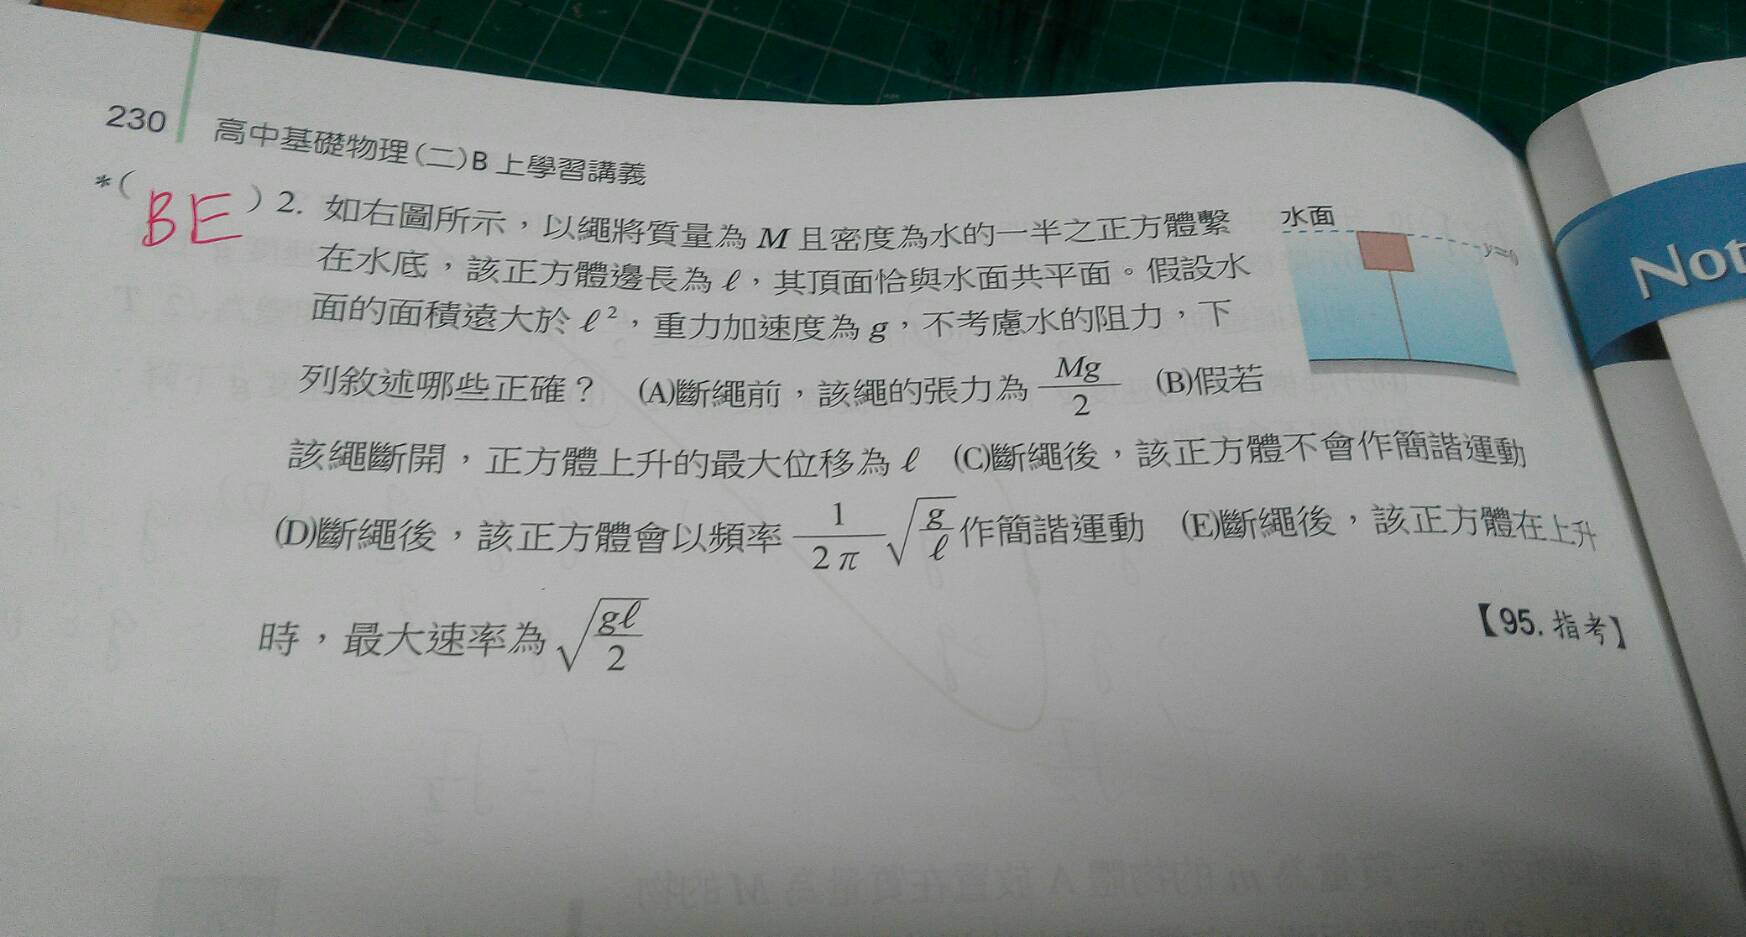 230 高中基礎物理(二)B上學習講義
*( BE ) 2. 如右圖所示，以繩將質量為 M 且密度為水的一半之正方體繫
在水底，該正方體邊長為 ℓ，其頂面恰與水面共平面。假設水
面的面積遠大於 ℓ²，重力加速度為 g，不考慮水的阻力，下
列敘述哪些正確？ (A)斷繩前，該繩的張力為 Mg/2 (B)假若
該繩斷開，正方體上升的最大位移為 ℓ (C)斷繩後，該正方體不會作簡諧運動
(D)斷繩後，該正方體會以頻率 1/2π √(g/ℓ) 作簡諧運動 (E)斷繩後，該正方體在上升
時，最大速率為 √(gℓ/2)
【95. 指考】
水面
y=0
Not